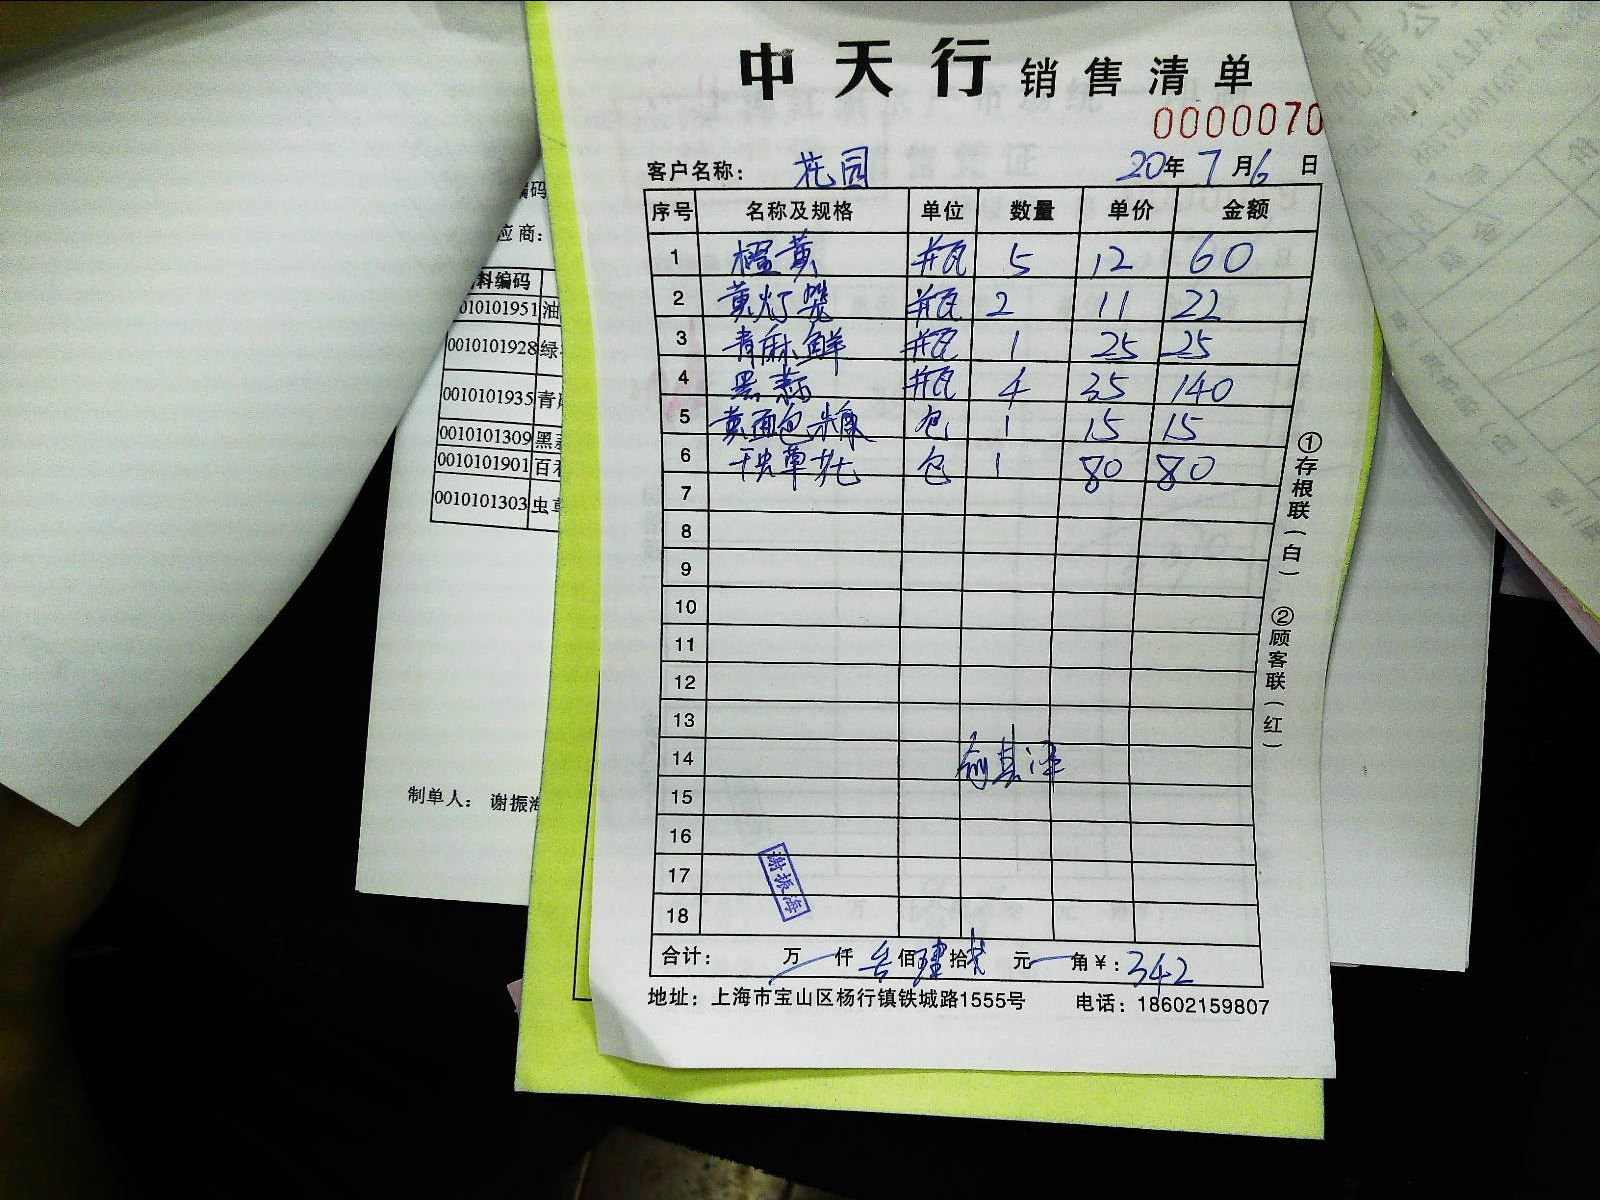 中天行 销售清单
0000070
客户名称： 花园 20年 7月6日
序号 名称及规格 单位 数量 单价 金额
1 瓶 5 12 60
2 黄灯 瓶 2 11 22
3 青麻鲜 瓶 1 25 25
4 黑蒜 瓶 4 35 140
5 黄面包糠 包 1 15 15
6 虫草花 包 1 80 80
7
8
9
10
11
12
13
14
15
16
17
18
谢振海
合计： 万 仟 叁佰 肆拾 贰元 角￥：342
地址：上海市宝山区杨行镇铁城路1555号 电话：18602159807
①存根联（白） ②顾客联（红）
编码
应商：
料编码
0010101951 油
0010101928 绿
0010101935 青
0010101309 黑
0010101901 百
0010101303 虫草
制单人： 谢振海